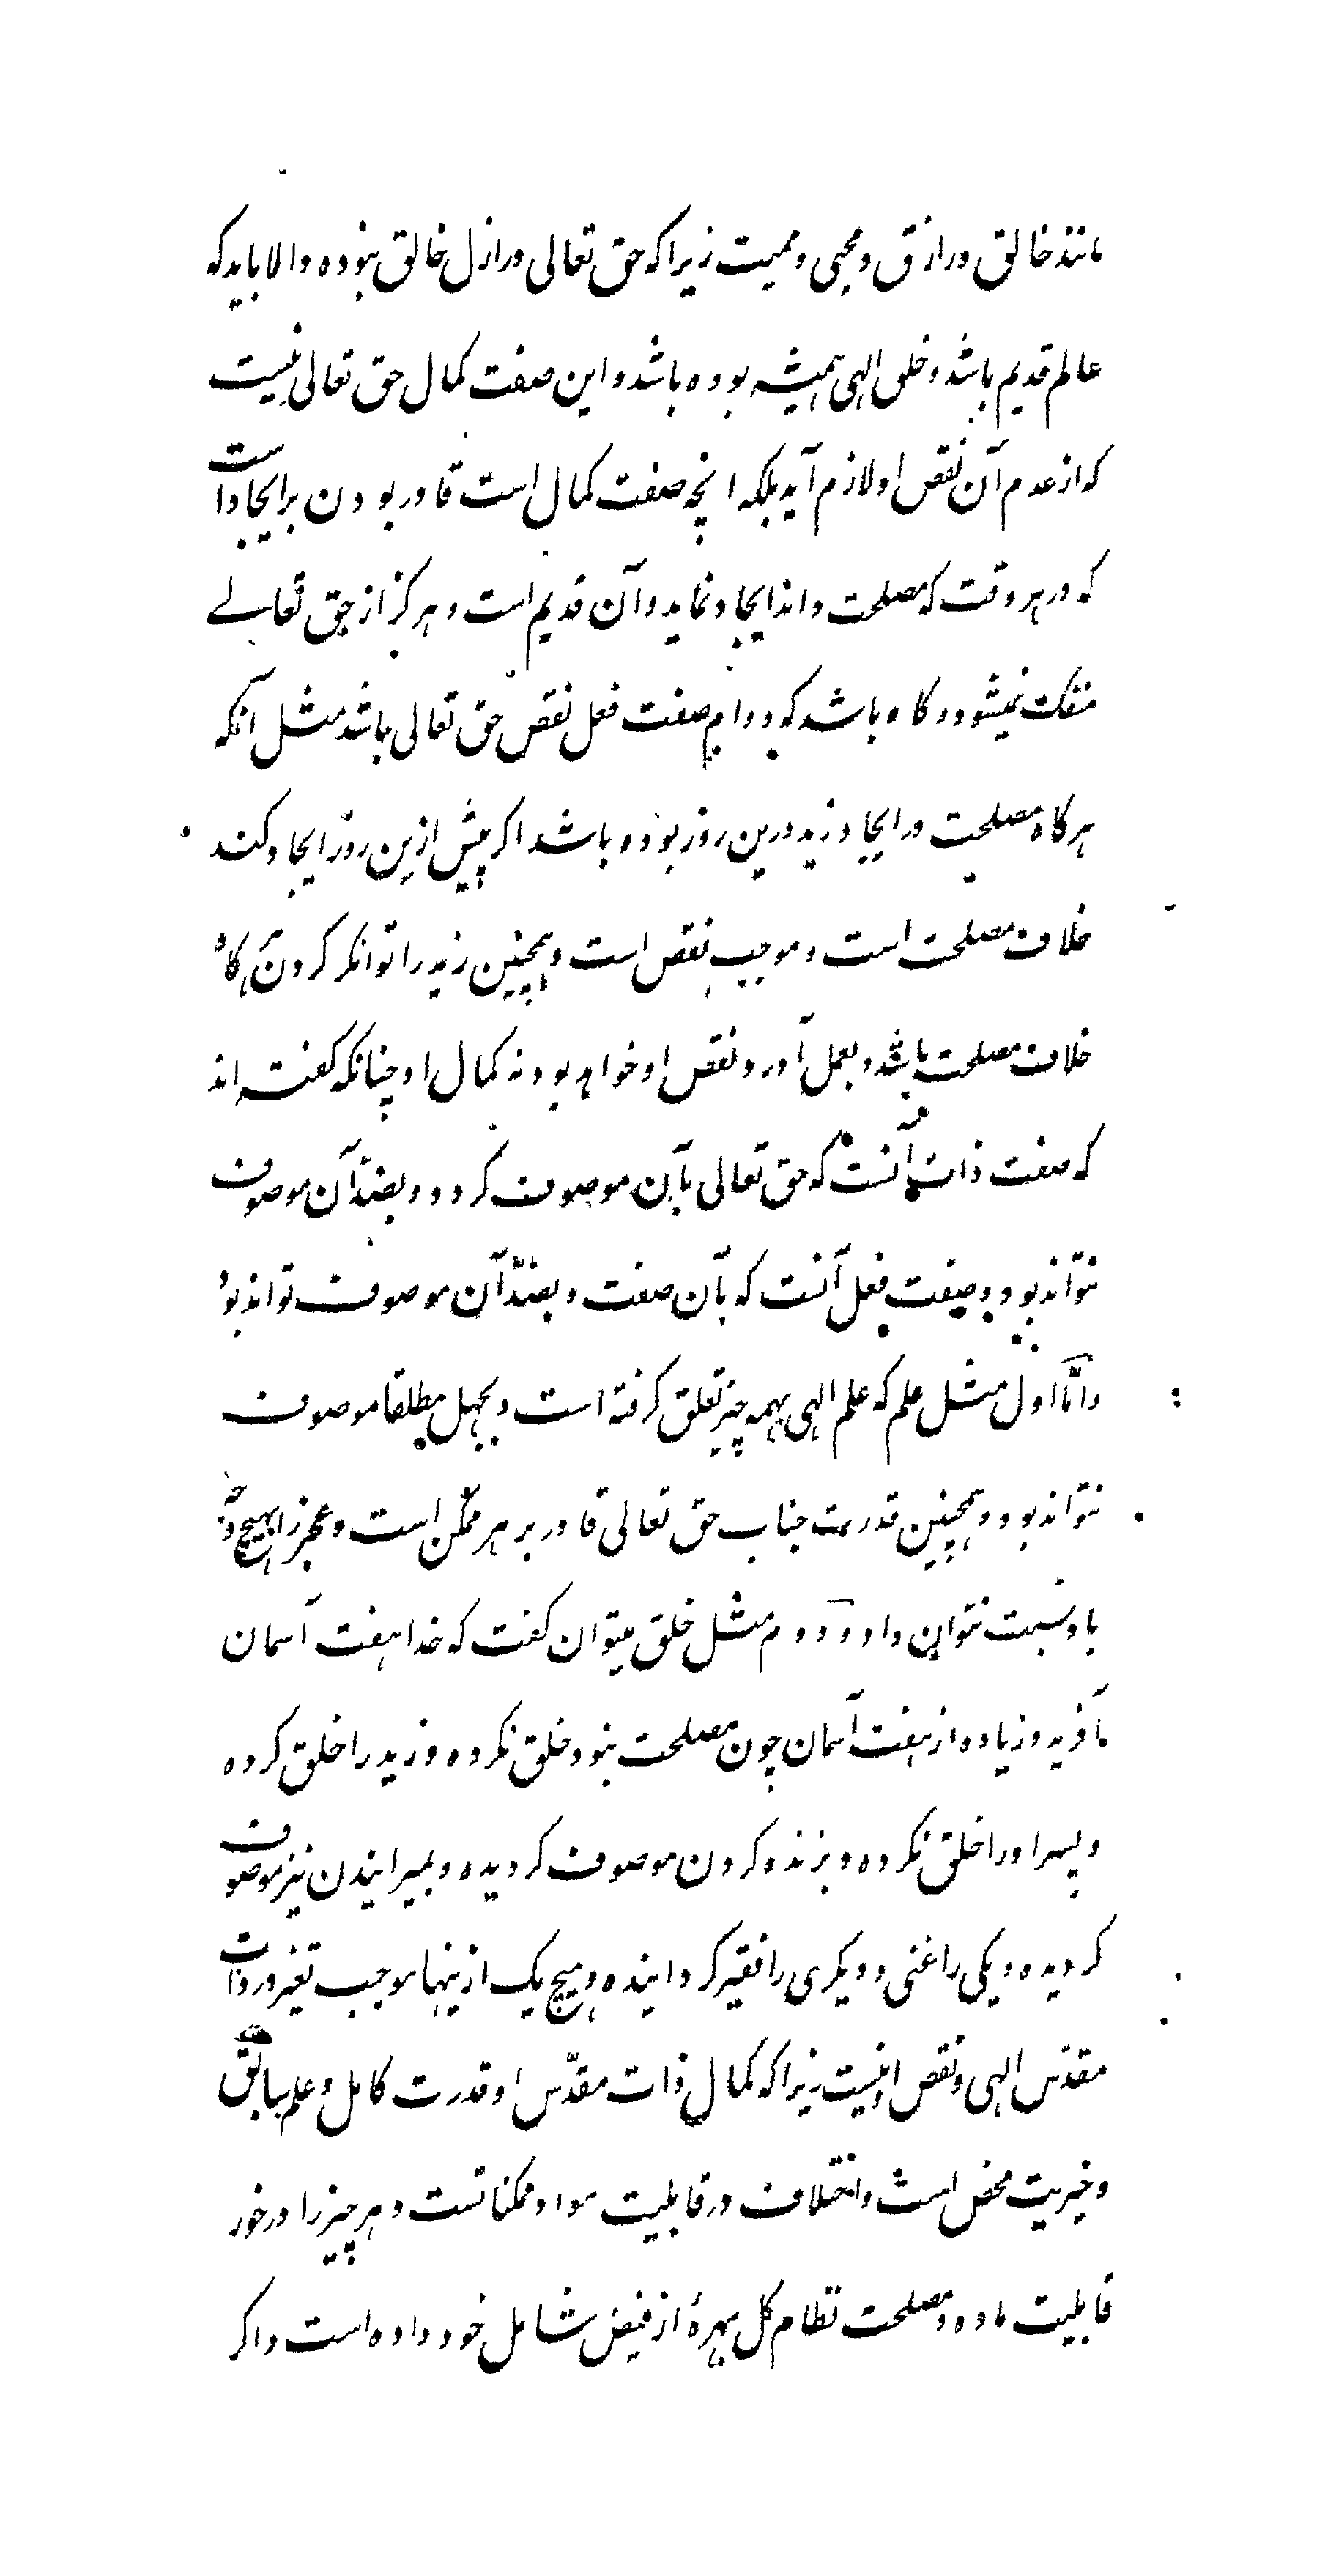 مانند خالق و رازق و محیی و ممیت زیرا که حق تعالی در ازل خالق نبوده و الا باید که
عالم قدیم باشد و خلق الهی همیشه بوده باشد و این صفت کمال حق تعالی نیست
که از عدم آن نقص او لازم آید بلکه انچه صفت کمال است قادر بودن بر ایجاد است
که در هر وقت که مصلحت داند ایجاد نماید و آن قدیم است و هرکز از حق تعالی
منفک نمیشود و کاه باشد که دوام صفت فعل نقص حق تعالی باشد مثل آنکه
هرکاه مصلحت در ایجاد زید درین روز بوده باشد اکر پیش ازین روز ایجاد کند
خلاف مصلحت است و موجب نقص است و همچنین زید را توانکر کردن هرکاه
خلاف مصلحت باشد و بعمل آورد نقص او خواهد بود نه کمال او چنانکه کفته اند
که صفت ذات آنست که حق تعالی بآن موصوف کردد و بضدّ آن موصوف
نتواند بود و صفت فعل آنست که بآن صفت و بضدّ آن موصوف تواند بود
و امّا اول مثل علم که علم الهی بهمه چیز تعلق کرفته است و بجهل مطلقا موصوف
نتواند بود و همچنین قدرت جناب حق تعالی قادر بر هر ممکن است و عجز را بهیچ وجه
باو نسبت نتوان داد و دوم مثل خلق میتوان کفت که خدا هفت آسمان
آفرید و زیاده از هفت آسمان چون مصلحت نبود خلق نکرده و زید را خلق کرده
و پسر او را خلق نکرده و بزنده کردن موصوف کردیده و بمیرانیدن نیز موصوف
کردیده و یکی را غنی و دیکری را فقیر کردانیده و هیچ یک ازینها موجب تغیر در ذات
مقدس الهی و نقص او نیست زیرا که کمال ذات مقدّس او قدرت کامل و علم سابق
و خیریت محض است و اختلاف در قابلیت مواد ممکناتست و هر چیز را در خور
قابلیت ماده و مصلحت نظام کل بهرهٔ از فیض شامل خود داده است و اکر